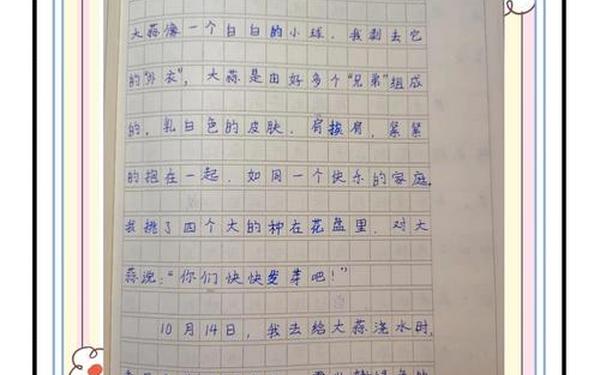 大蒜像一个白白的小球。我剥去它
的“外衣”，大蒜是由好多个“兄弟”组成
的，乳白色的皮肤，肩挨肩，紧紧
的抱在一起，如同一个快乐的家庭。
我挑了四个大的种在花盆里，对大
蒜说：“你们快快发芽吧！”
10月14日，我去给大蒜浇水时，